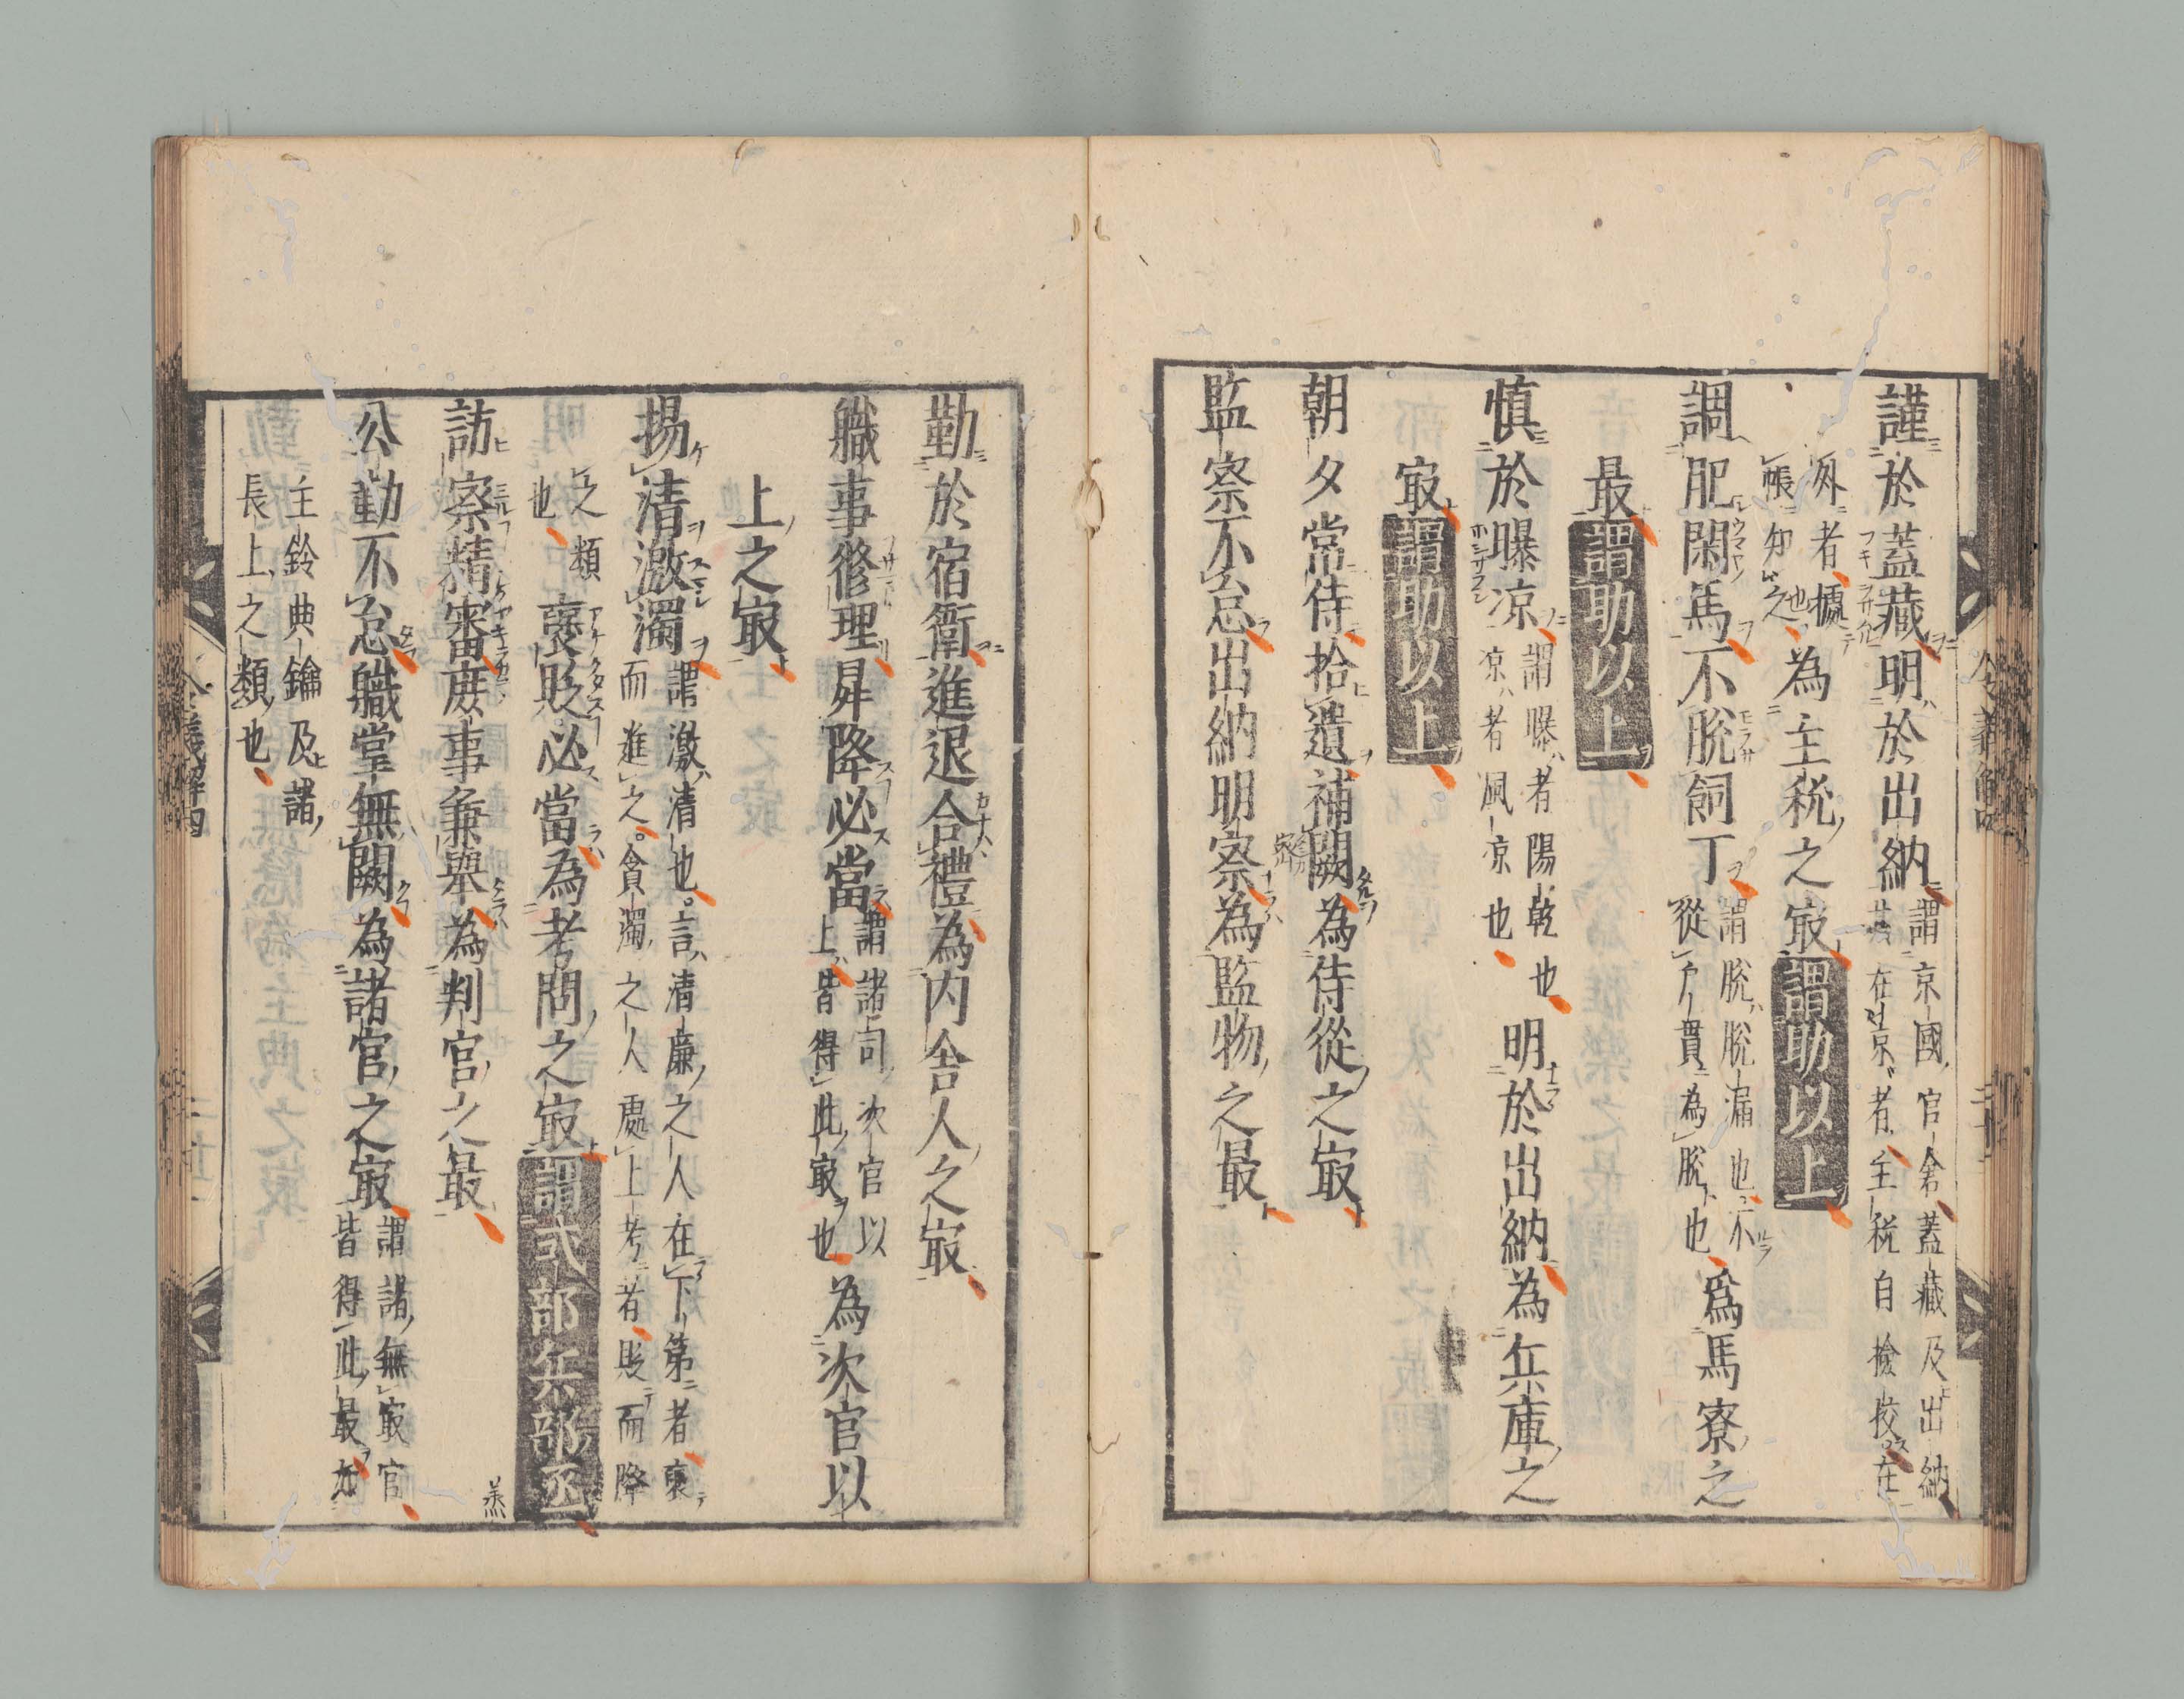 謹於蓋藏明於出納謂京國官舍蓋藏及出納
其在京者主税自撿挍在
外者據
帳知之也為主税之㝡謂助以上
調肥閑馬不脱飼丁謂脱脱漏也不
從戸貫為脱也為馬寮之
最謂助以上
慎於曝凉謂曝者陽乾也
凉者風凉也明於出納為兵庫之
㝡謂助以上
朝夕常侍拾遺補闕為侍從之㝡
監察不怠出納明察為監物之最
勤於宿衛進退合禮為内舎人之㝡
職事修理昇降必當謂諸司次官以
上皆得此㝡也為次官以
上之㝡
揚清激濁謂激清也言清廉之人在下第者褒
而進之貪濁之人處上考者貶而降
之類
也褒貶必當為考問之㝡謂式部兵部丞
訪察精審庶事兼舉為判官之最
公勤不怠職掌無闕為諸官之㝡謂諸無㝡官
皆得此最尓
主鈴典鑰及諸
長上之類也
令義解四